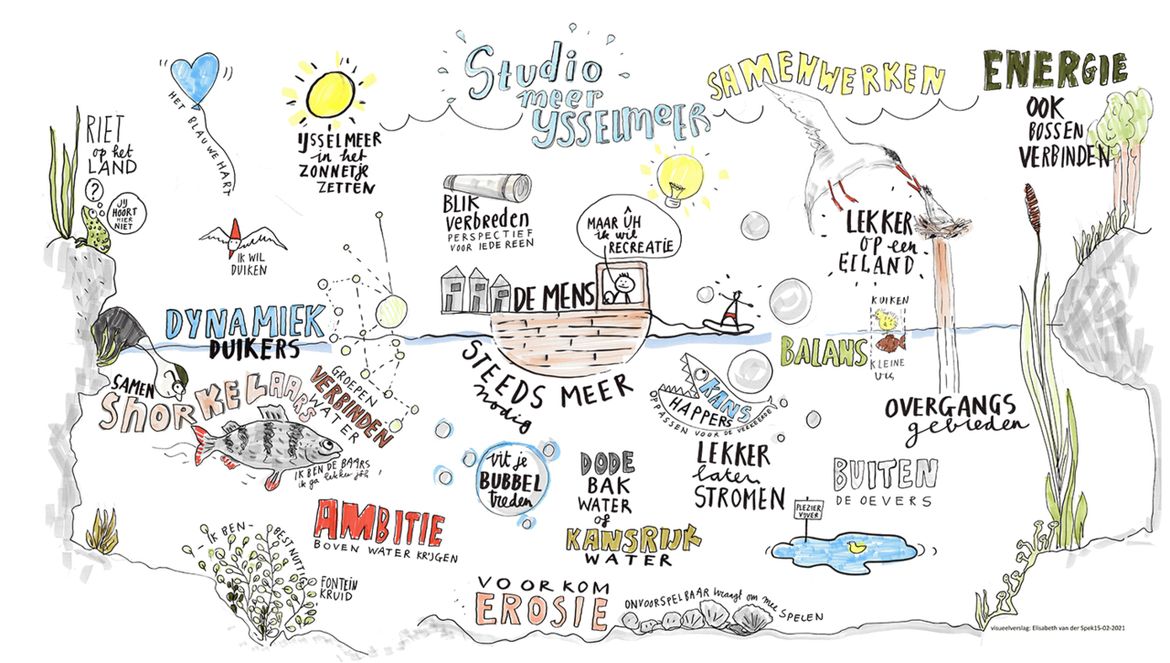 Studio
meer
YSSELMEER
SAMENWERKEN
ENERGIE
OOK
BOSSEN
VERBINDEN
HET BLAUWE HART
IJSSELMEER
in het
ZONNETJE
ZETTEN
RIET
op het
LAND
?
JIJ
HOORT
HIER
NIET
IK WIL
DUIKEN
BLIK
verbreden
PERSPECTIEF
VOOR IEDEREEN
MAAR ÛH
ik wil
RECREATIE
LEKKER
op een
EILAND
DE MENS
STEEDS MEER
nodig
DYNAMIEK
DUIKERS
SAMEN
SNORKELAARS
GROEPEN
VERBINDEN
WATER
KUIKEN
BALANS
KLEINE
VIS
KANS
HAPPERS
OPPASSEN VOOR DE VERKEERDE
OVERGANGS
gebieden
IK BEN DE BAARS
ik ga lekker
uit je
BUBBEL
treden
DODE
BAK
WATER
of
KANSRIJK
WATER
LEKKER
laten
STROMEN
BUITEN
DE OEVERS
PLEZIER
VIJVER
AMBITIE
BOVEN WATER KRIJGEN
IK BEN BEST NUTTIG
FONTEIN
KRUID
VOORKOM
EROSIE
ONVOORSPELBAAR vraagt om mee SPELEN
visueelverslag: Elisabeth van der Spek15-02-2021